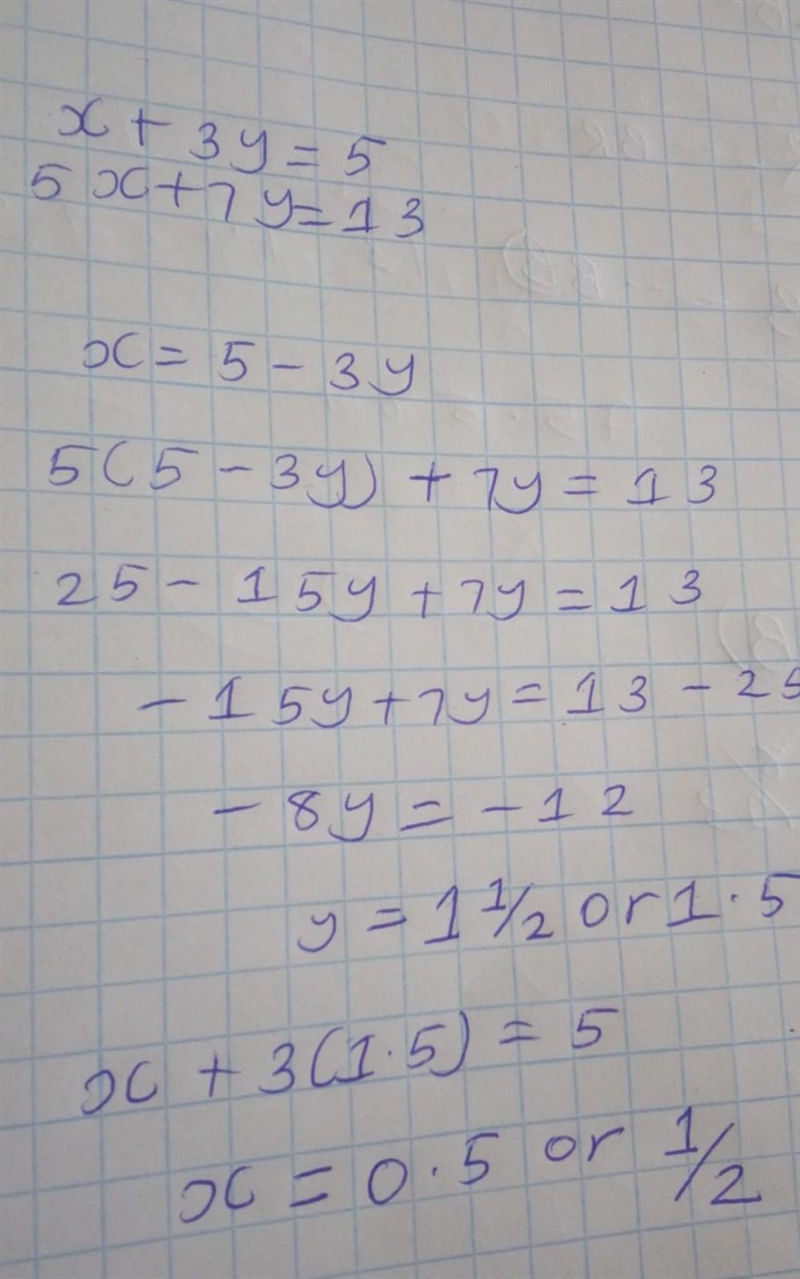 x + 3y = 5
5x + 7y = 13
x = 5 - 3y
5(5 - 3y) + 7y = 13
25 - 15y + 7y = 13
- 15y + 7y = 13 - 25
- 8y = - 12
y = 1 1/2 or 1.5
x + 3(1.5) = 5
x = 0.5 or 1/2